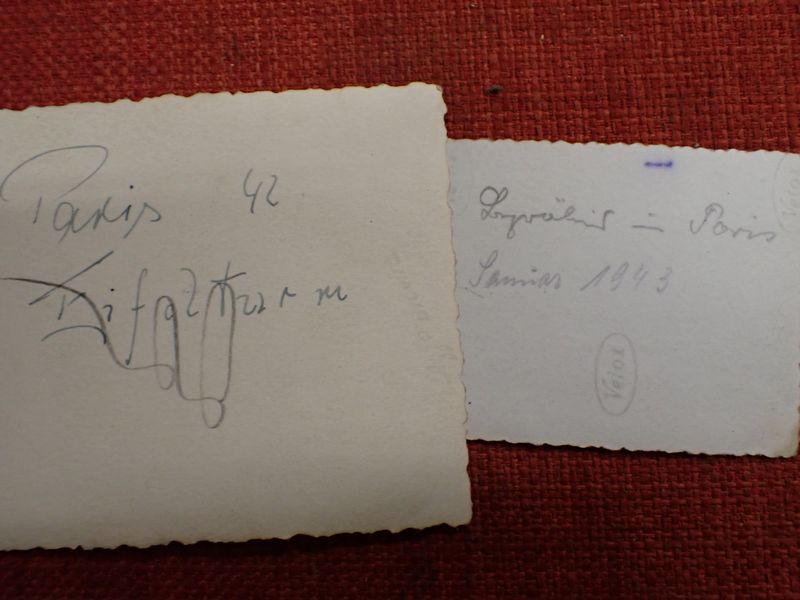 Paris 42
Eifelturm
Begräbnis in Paris
Januar 1943
Velox
Velox